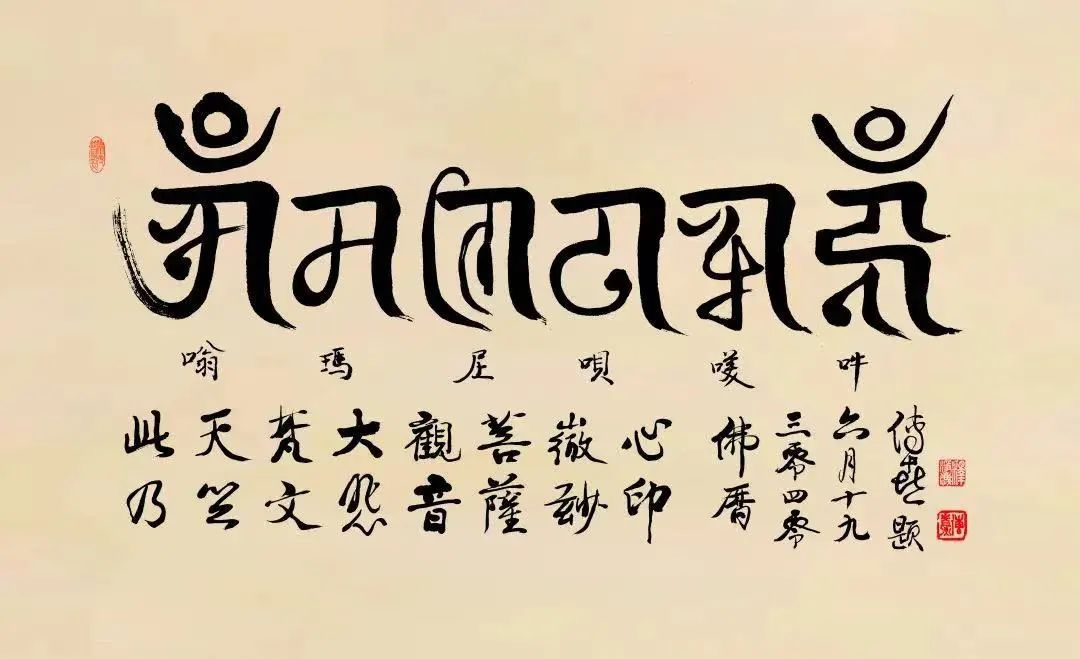 𑖌𑖼 𑖦 𑖜𑖰 𑖢 𑖟𑖿𑖦𑖸 𑖮𑖳𑖼
嗡 瑪 尼 唄 吽
此乃
天竺
梵文
大悲
觀音
菩薩
微妙
心印
佛曆
三零四零
六月十九
傳喜題